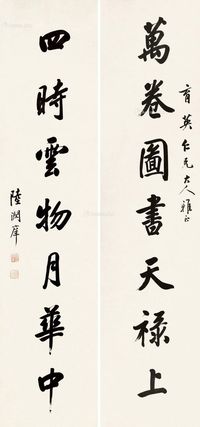 萬卷圖書天祿上
育英仁兄大人雅正
四時雲物月華中
陸潤庠